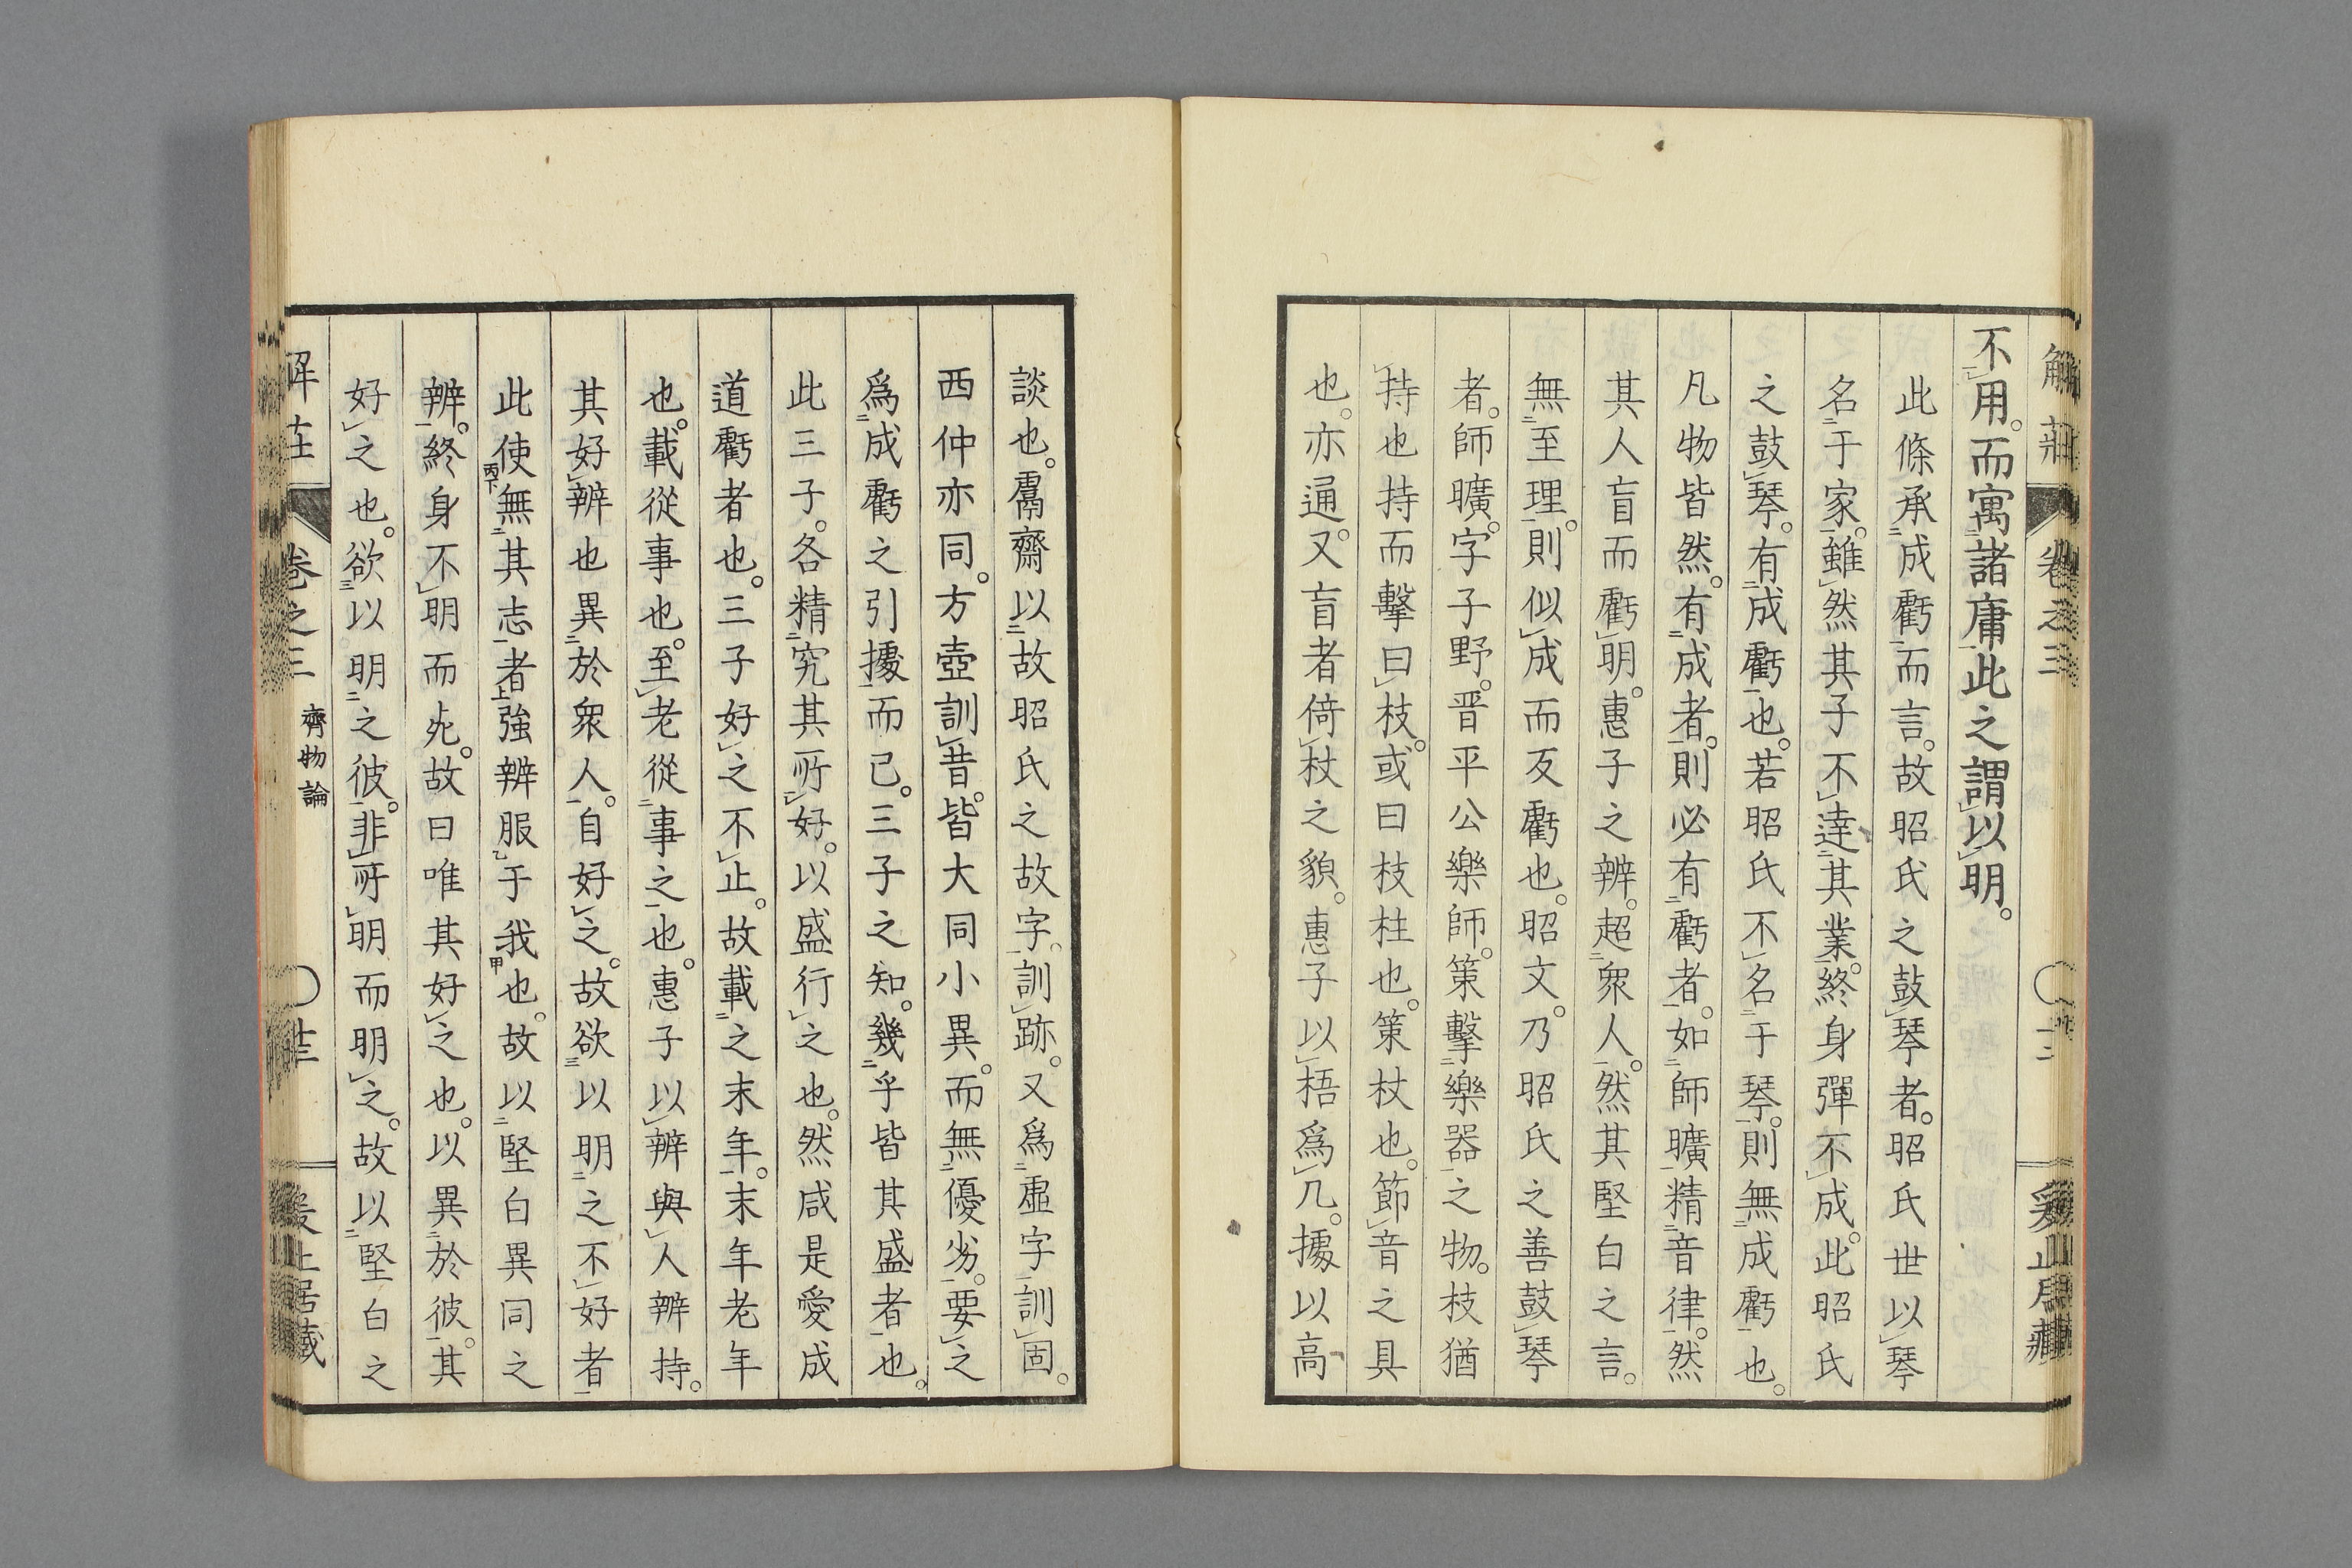 不用。而寓諸庸此之謂以明。
此條承成虧而言。故昭氏之鼓琴者。昭氏世以琴
名于家。雖然其子不達其業。終身彈不成。此昭氏
之鼓琴。有成虧也。若昭氏不名于琴。則無成虧也。
凡物皆然。有成者。則必有虧者。如師曠精音律。然
其人盲而虧明。惠子之辨。超衆人。然其堅白之言。
無至理。則似成而反虧也。昭文。乃昭氏之善鼓琴
者。師曠。字子野。晋平公樂師。策擊樂器之物。枝猶
持也持而擊曰枝。或曰枝柱也。策杖也。節音之具
也。亦通。又盲者倚杖之貌。惠子以梧爲几。據以高
談也。鬳齋以故昭氏之故字。訓跡。又爲虛字訓固。
西仲亦同。方壺訓昔。皆大同小異。而無優劣。要之
爲成虧之引據而已。三子之知。幾乎皆其盛者也。
此三子。各精究其所好。以盛行之也。然咸是愛成
道虧者也。三子好之不止。故載之末年。末年老年
也。載從事也。至老從事之也。惠子以辨與人辨持。
其好辨也異於衆人。自好之。故欲以明之不好者
此使無其志者強辨服于我也。故以堅白異同之
辨。終身不明而死。故曰唯其好之也。以異於彼。其
好之也。欲以明之彼。非所明而明之。故以堅白之
卷之三
齊物論